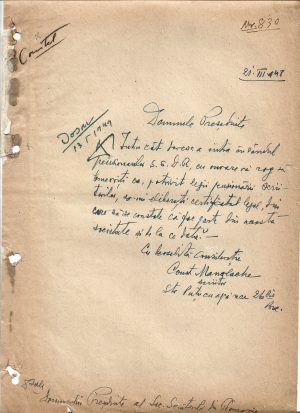 Nr. 830
Comitet
21 III 948
Dosar
13 I 1949
Domnule Președinte
Întru cât doresc a intra în rândul
pensionarului S.S.R., cu onoare vă rog să
binevoiți ca, potrivit legii pensionării scrii-
torilor, să-mi eliberați certificatul legal, din
care să se constate că fac parte din această
societate și de la ce dată. —
Cu deosebite
Const. Manolache
scriitor
Str. Puțu cu apă rece
Domnului Președinte al Soc. Scriitorilor din România